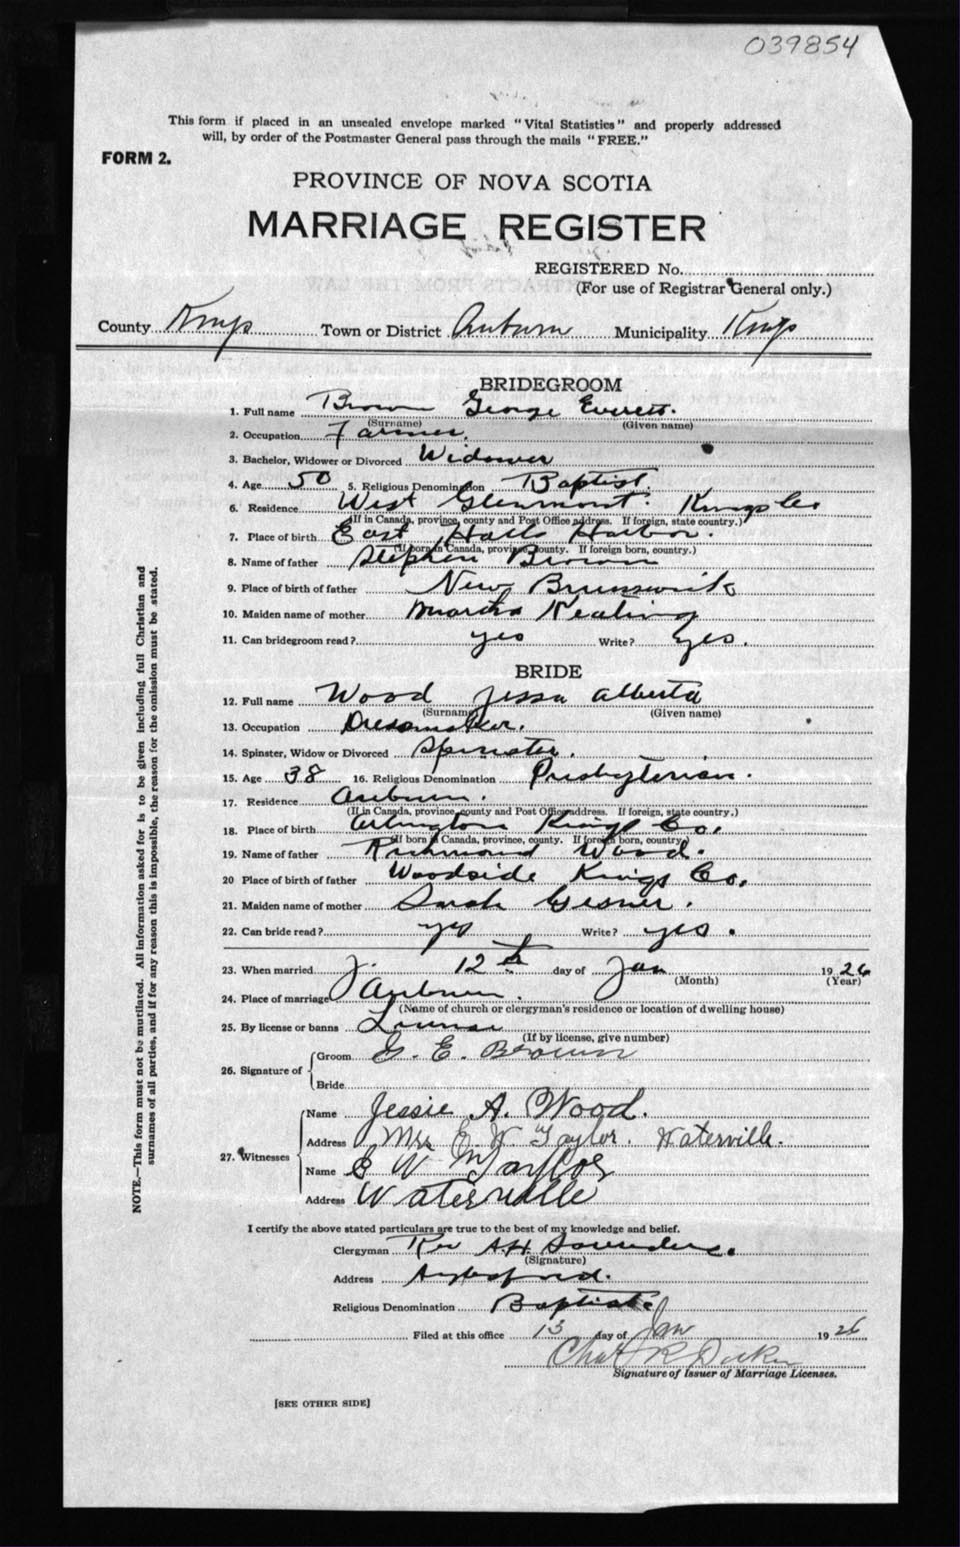 039854
This form if placed in an unsealed envelope marked "Vital Statistics" and properly addressed
will, by order of the Postmaster General pass through the mails "FREE."
FORM 2.
PROVINCE OF NOVA SCOTIA
MARRIAGE REGISTER
REGISTERED No.
(For use of Registrar General only.)
County Kings Town or District Auburn Municipality Kings
BRIDEGROOM
1. Full name Brown George Everett.
(Surname) (Given name)
2. Occupation Farmer.
3. Bachelor, Widower or Divorced Widower
4. Age 50 5. Religious Denomination Baptist.
6. Residence West Glenmont. Kings Co
(If in Canada, province, county and Post Office address. If foreign, state country.)
7. Place of birth East Halls Harbor.
(If born in Canada, province, county. If foreign born, country.)
8. Name of father Stephen Brown
9. Place of birth of father New Brunswick
10. Maiden name of mother Martha Keating
11. Can bridegroom read? yes Write? yes.
BRIDE
12. Full name Wood Jessa Alberta
(Surname) (Given name)
13. Occupation Dressmaker.
14. Spinster, Widow or Divorced Spinster.
15. Age 38 16. Religious Denomination Presbyterian.
17. Residence Auburn.
(If in Canada, province, county and Post Office address. If foreign, state country.)
18. Place of birth Arlington Kings Co.
(If born in Canada, province, county. If foreign born, country.)
19. Name of father Richmond Wood.
20 Place of birth of father Woodside Kings Co.
21. Maiden name of mother Sarah Gesner.
22. Can bride read? yes Write? yes.
23. When married 12th day of Jan 1926
(Month) (Year)
24. Place of marriage Auburn.
(Name of church or clergyman's residence or location of dwelling house)
25. By license or banns License
(If by license, give number)
26. Signature of Groom G. E. Brown
Bride
27. Witnesses Name Jessie A. Wood.
Address Mrs E. W Taylor. Waterville.
Name E W Taylor
Address Waterville
I certify the above stated particulars are true to the best of my knowledge and belief.
Clergyman Rev A.H. Saunders.
(Signature)
Address Aylesford.
Religious Denomination Baptist.
Filed at this office 13 day of Jan 1926
Chas R
Signature of Issuer of Marriage Licenses.
[SEE OTHER SIDE]
NOTE.—This form must not be mutilated. All information asked for is to be given including full Christian and
surnames of all parties, and if for any reason this is impossible, the reason for the omission must be stated.